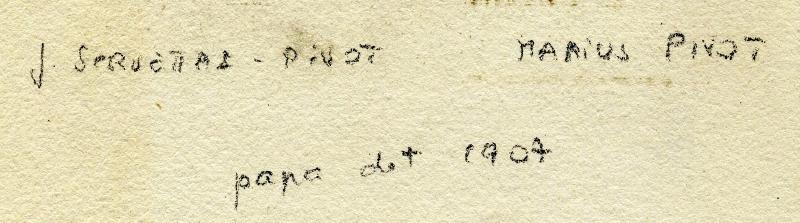 J. SERVETTAS - PIVOT MARIUS PIVOT
papa det 1907